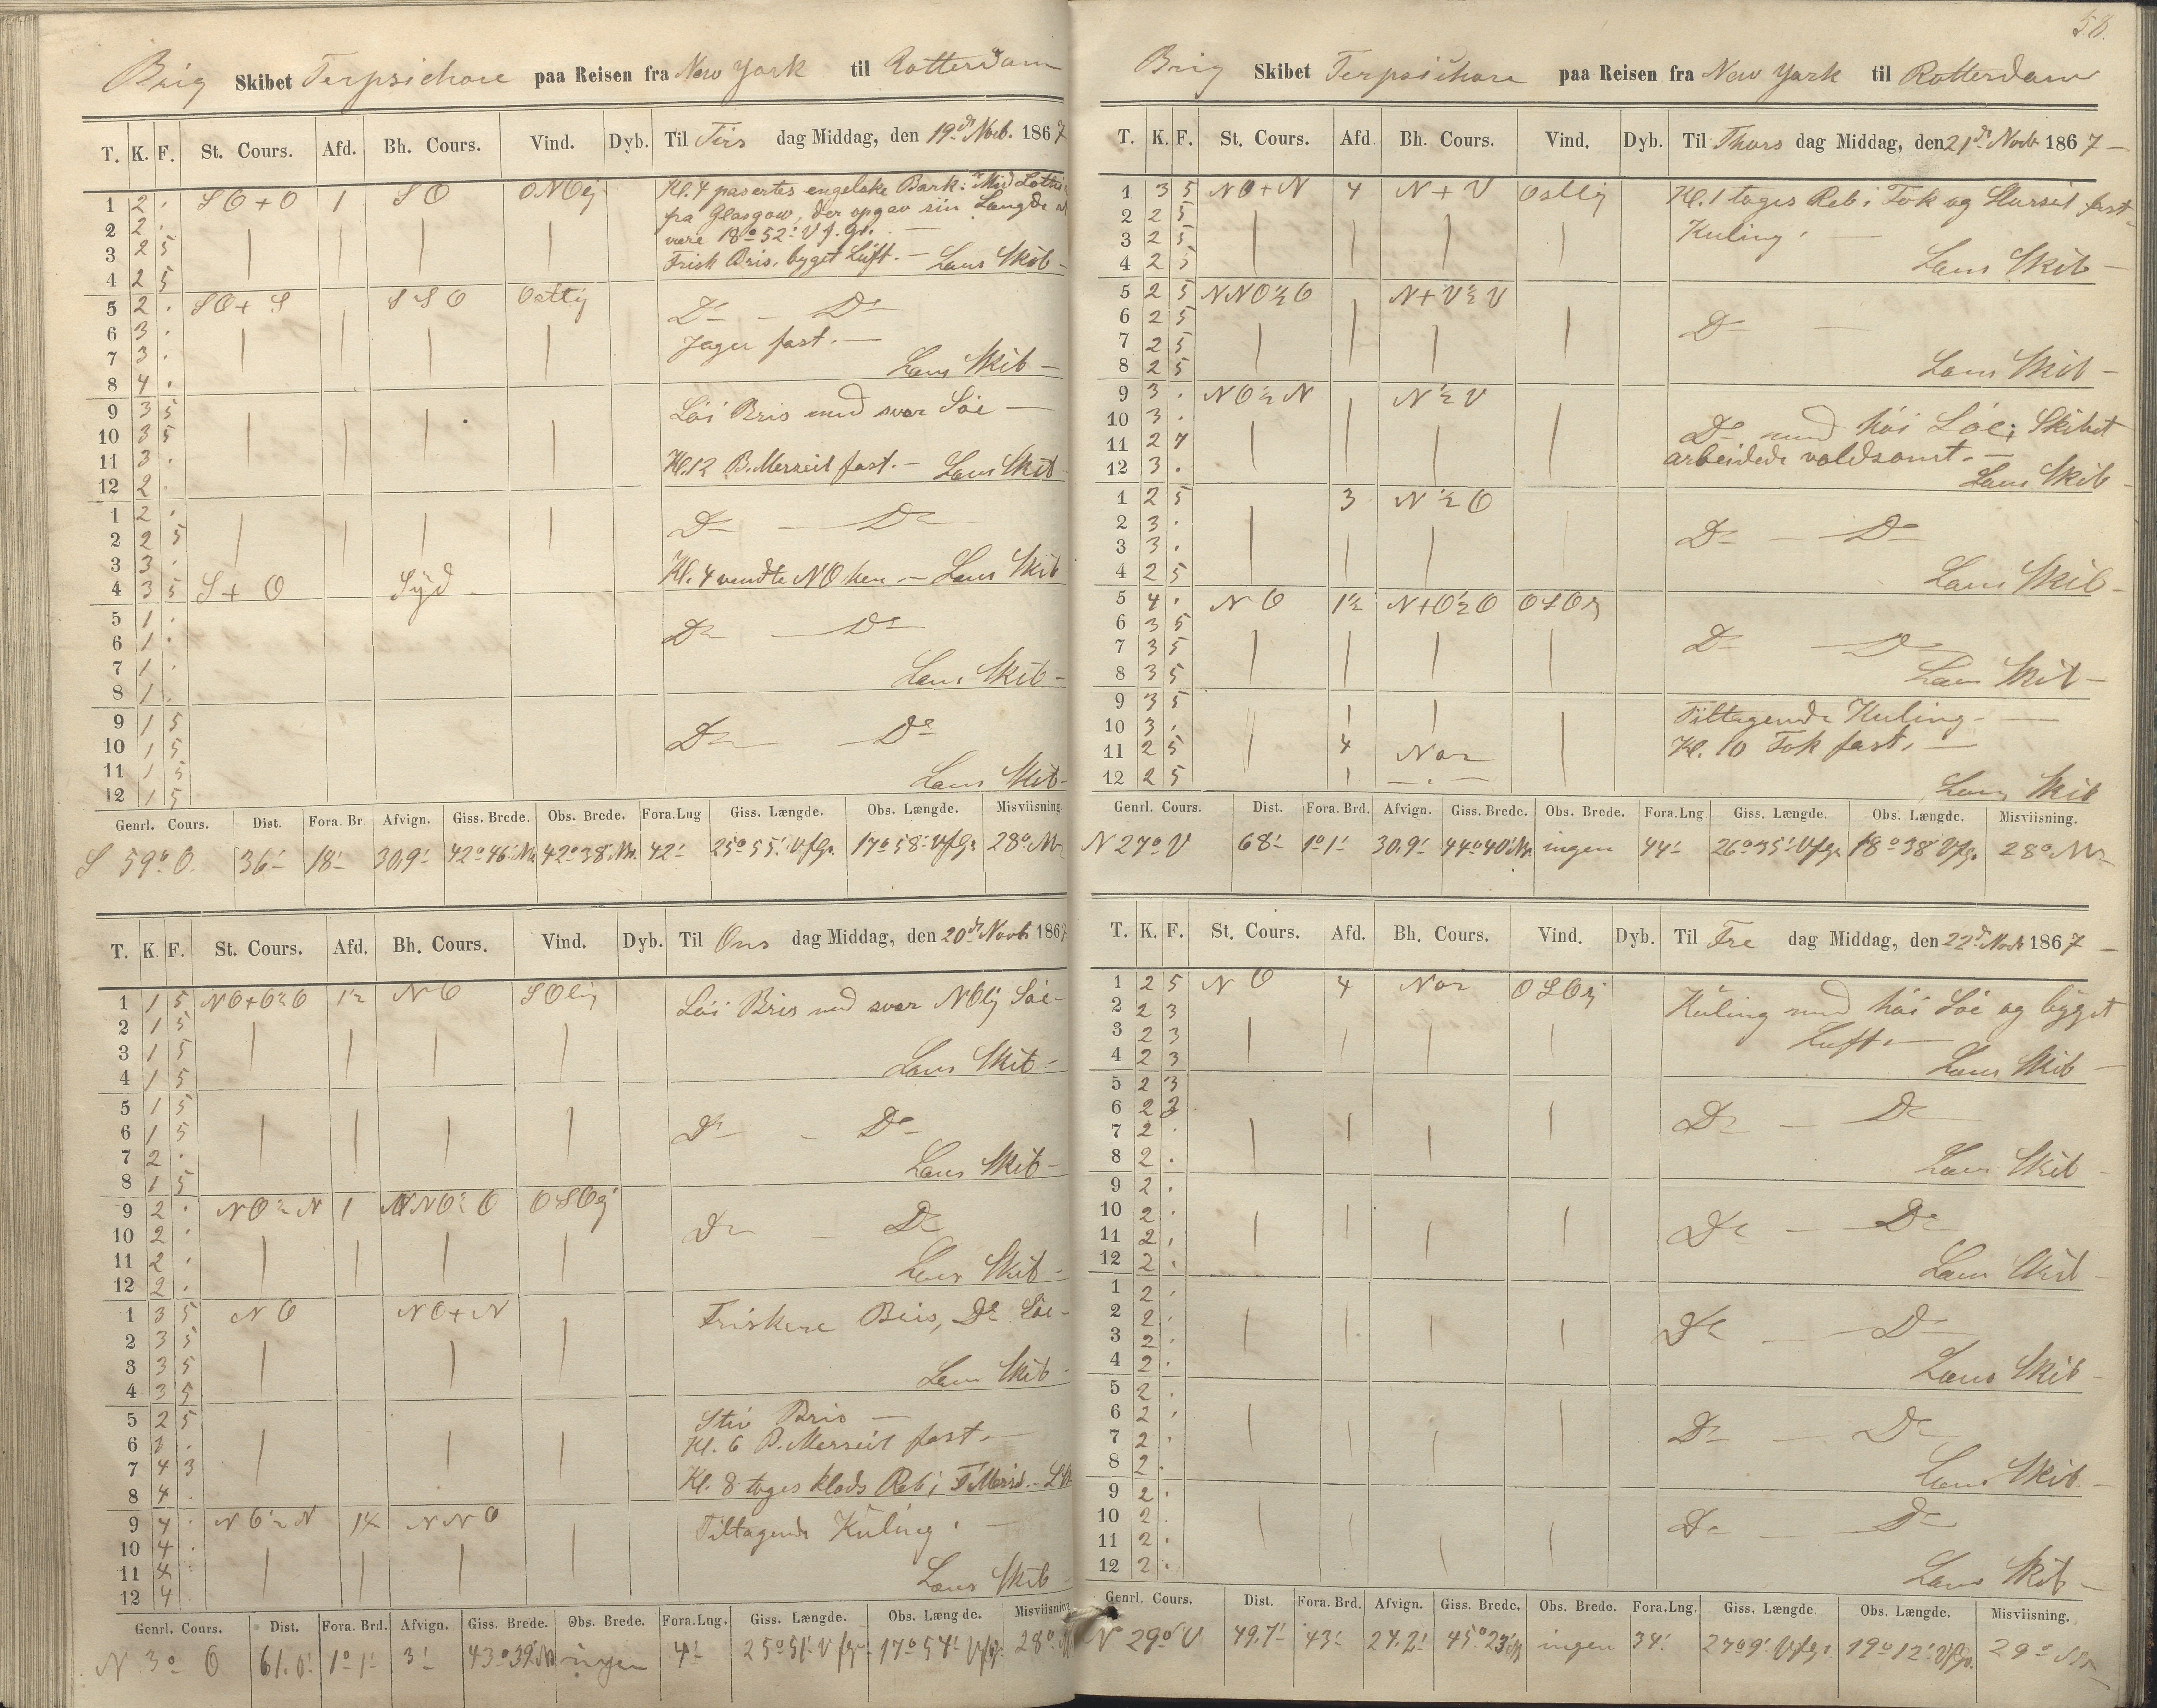 Brig Skibet Terpsichore paa Reisen fra New York til Rotterdam
T. K. F. St. Cours. Afd. Bh. Cours. Vind. Dyb. Til Tirs dag Middag, den 19de Novb. 1867
1 2 . SO+O 1 SO ONOlig Kl. 4 pasertes engelske Bark: "Mid Lothi
2 2 . fra Glasgow, der opgav sin Længde at
3 2 5 være 18° 52' V f. Gr. —
4 2 5 Frisk Bris, byget Luft. — Læns Skib —
5 2 . SO+S SSO Ostlig Do — Do
6 3 .
7 3 . Jager fast. —
8 4 . Læns Skib —
9 3 5 Löi Bris med svær Söe —
10 3 5
11 3 . Kl. 12 B. Merseil fast. — Læns Skib
12 2 .
1 2 . Do — Do
2 2 5
3 3 .
4 3 5 S+O Syd Kl. 4 vendte NO hen. — Læns Skib
5 1 . Do — Do
6 1 .
7 1 . Læns Skib —
8 1 .
9 1 5 Do Do
10 1 5
11 1 5 Læns Skib —
12 1 5
Genrl. Cours. Dist. Fora. Br. Afvign. Giss. Brede. Obs. Brede. Fora.Lng Giss. Længde. Obs. Længde. Misviisning.
S 59° O. 36' 18' 30.9' 42° 46' N. 42° 38' N. 42' 25° 55' V f Gr. 17° 58' V f Gr. 28° N
T. K. F. St. Cours. Afd. Bh. Cours. Vind. Dyb. Til Ons dag Middag, den 20de Novb. 1867
1 1 5 NO+O½O 1½ NO SOlig Löi Bris med svær NOlig Söe —
2 1 5
3 1 5 Læns Skib —
4 1 5
5 1 5 Do — Do
6 1 5
7 2 . Læns Skib —
8 1 5
9 2 . NO½N 1 NNO½O OSOlig Do — Do
10 2 .
11 2 . Læns Skib —
12 2 .
1 3 5 NO NO+N Friskere Bris, Do Söe —
2 3 5
3 3 5 Læns Skib
4 3 5
5 2 5 Stiv Bris —
6 3 . Kl. 6 B. Merseil fast. —
7 4 3
8 4 . Kl. 8 toges klods Reb i F Mers. — L Sk
9 4 . NO½N 1½ NNO Tiltagende Kuling. —
10 4 .
11 4 . Læns Skib
12 4 .
Genrl. Cours. Dist. Fora. Brd. Afvign. Giss. Brede. Obs. Brede. Fora.Lng. Giss. Længde. Obs. Længde. Misviisning
N 3° O 61.0' 1° 1' 3' 43° 39' N ingen 4' 25° 51' V f Gr. 17° 54' V f Gr. 28° N
58.
Brig Skibet Terpsichore paa Reisen fra New York til Rotterdam
T. K. F. St. Cours. Afd Bh. Cours. Vind. Dyb. Til Thors dag Middag, den 21de Novb 1867 —
1 3 5 NO+N 4 N+V Ostlig Kl. 1 toges Reb i Fok og Storseil frisk
2 2 5
3 2 5 Kuling. —
4 2 5 Læns Skib —
5 2 5 NNO½O N+V½V
6 2 5 Do —
7 2 5
8 2 5 Læns Skib —
9 3 . NO½N N½V
10 3 . Do med höi Söe; Skibet
11 2 7 arbeidede voldsomt. —
12 3 . Læns Skib —
1 2 5 3 N½O
2 3 . Do — Do
3 3 .
4 2 5 Læns Skib —
5 4 . NO 1½ N+O½O OSOlig
6 3 5
7 3 5 Do Do
8 3 5 Læns Skib —
9 3 5 Tiltagende Kuling. —
10 3 . Kl. 10 Fok fast. —
11 2 5 4 Nor
12 2 5 Læns Skib
Genrl. Cours. Dist. Fora. Brd. Afvign. Giss. Brede. Obs. Brede. Fora.Lng. Giss. Længde. Obs. Længde. Misviisning.
N 27° V 68' 1° 1' 30.9' 44° 40' N. ingen 44' 26° 35' V f Gr. 18° 38' V f Gr. 28° N
T. K. F. St. Cours. Afd. Bh. Cours. Vind. Dyb. Til Fre dag Middag, den 22de Novb 1867 —
1 2 5 NO 4 Nor OSOlig Kuling med höi Söe og byget
2 2 3
3 2 3 Luft. —
4 2 3 Læns Skib —
5 2 3
6 2 3 Do — Do
7 2 .
8 2 . Læns Skib —
9 2 .
10 2 . Do — Do
11 2 .
12 2 . Læns Skib —
1 2 .
2 2 . Do — Do
3 2 .
4 2 . Læns Skib —
5 2 .
6 2 . Do — Do
7 2 .
8 2 . Læns Skib —
9 2 .
10 2 . Do — Do
11 2 .
12 2 . Læns Skib —
Genrl. Cours. Dist. Fora. Brd. Afvign. Giss. Brede. Obs. Brede. Fora.Lng. Giss. Længde. Obs. Længde. Misviisning.
N 29° V 49.7' 43' 24.2' 45° 23' N ingen 34' 27° 9' V f Gr. 19° 12' V f Gr. 29° N